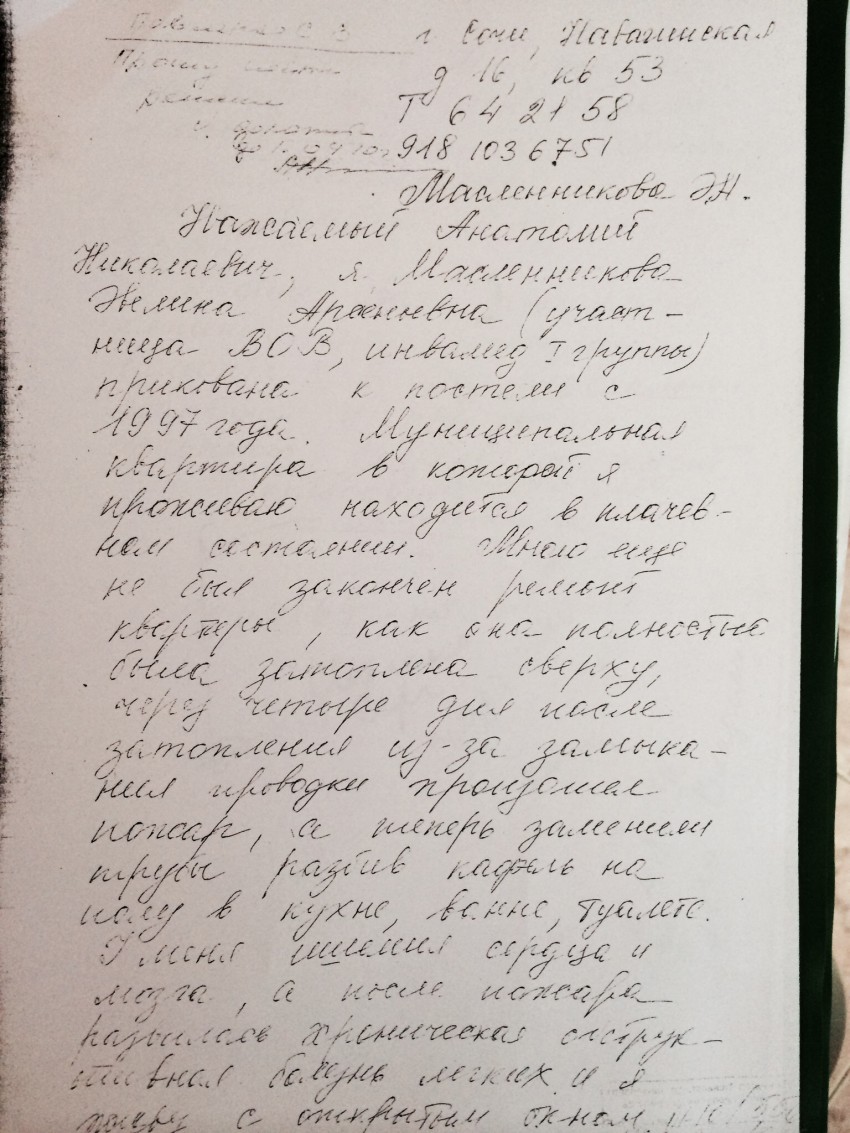 г. Сочи, Навагинская
Прошу
д 16, кв 53
Т 64 21 58
918 103 6751
Масленникова Э.А.
Уважаемый Анатолий
Николаевич, я Масленникова
Эвелина Арсеньевна (участ-
ница ВОВ, инвалид I группы)
прикована к постели с
1997 года. Муниципальная
квартира в которой я
проживаю находится в плачев-
ном состоянии. Мною еще
не был закончен ремонт
квартиры, как она полностью
была затоплена сверху,
через четыре дня после
затопления из-за замыка-
ния проводки произошел
пожар, а теперь заменили
трубы разбив кафель на
полу в кухне, ванне, туалете.
У меня ишемия сердца и
мозга, а после пожара
развилась хроническая обструк-
тивная болезнь легких и я
живу с открытым окном